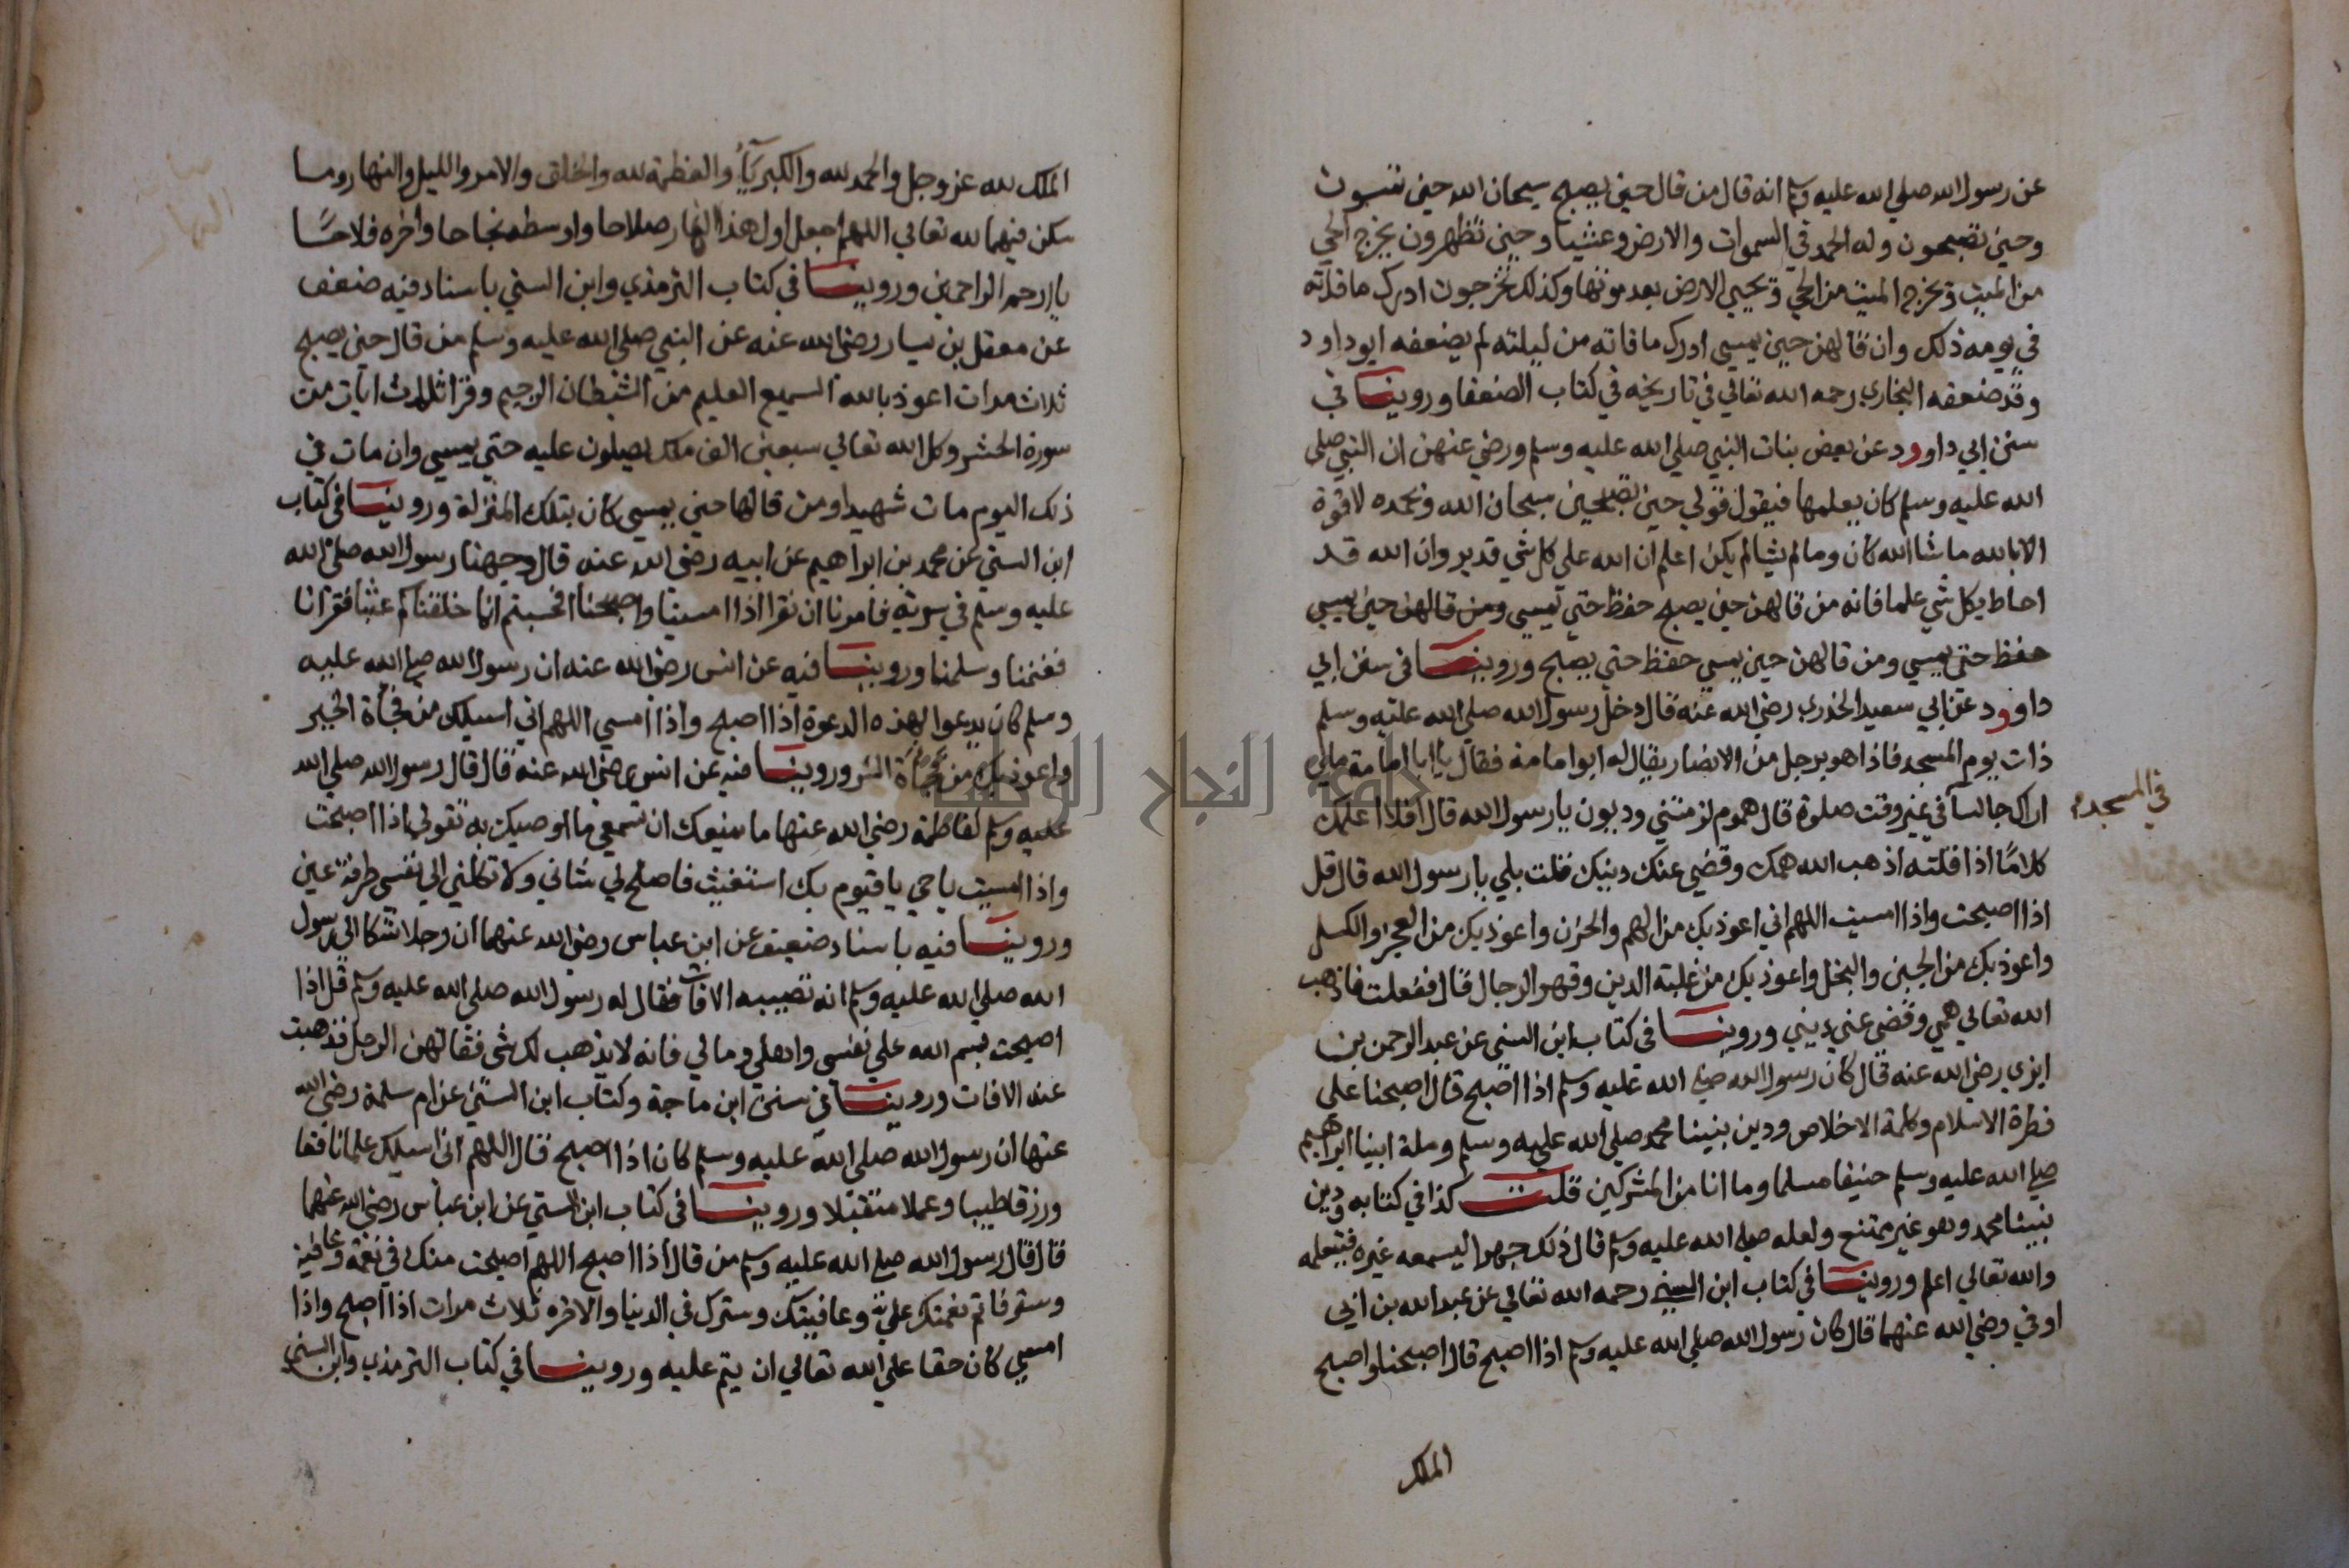 عن رسول الله صلي الله عليه وسلم انه قال من قال حين يصبح سبحان الله حين تمسون
وحين تصبحون وله الحمد في السموات والارض وعشيا وحين تظهرون يخرج الحي
من الميت ويخرج الميت من الحي ويحيي الارض بعد موتها وكذلك تخرجون ادرك ما فاته
في يومه ذلك وان قالهن حين يمسي ادرك ما فاته من ليلته لم يضعفه ابو داود
وقد ضعفه البخاري رحمه الله تعالي في تاريخه في كتاب الضعفا وروينا في
سنن ابي داوود عن بعض بنات النبي صلي الله عليه وسلم ورضي عنهن ان النبي صلى
الله عليه وسلم كان يعلمها فيقول قولي حين تصبحين سبحان الله وبحمده لا قوة
الا بالله ما شا الله كان وما لم يشا لم يكن اعلم ان الله علي كل شي قدير وان الله قد
احاط بكل شي علما فانه من قالهن حين يصبح حفظ حتي يمسي ومن قالهن حين يمسي
حفظ حتي يمسي ومن قالهن حين يمسي حفظ حتي يصبح وروينا في سنن ابي
داوود عن ابي سعيد الخدري رضي الله عنه قال دخل رسول الله صلي الله عليه وسلم
ذات يوم المسجد فاذا هو برجل من الانصار يقال له ابو امامة فقال يا ابا امامة مالي
اراك جالسا في غير وقت صلوة قال هموم لزمتني وديون يا رسول الله قال افلا اعلمك
في المسجد
كلاما اذا قلته اذهب الله همك وقضي عنك دينك قلت بلي يا رسول الله قال قل
اذا اصبحت واذا امسيت اللهم اني اعوذ بك من الهم والحزن واعوذ بك من العجز والكسل
واعوذ بك من الجبن والبخل واعوذ بك من غلبة الدين وقهر الرجال قال ففعلت فاذهب
الله تعالي همي وقضي عني ديني وروينا في كتاب ابن السني عن عبد الرحمن بن
ابزي رضي الله عنه قال كان رسول الله صلي الله عليه وسلم اذا اصبح قال اصبحنا علي
فطرة الاسلام وكلمة الاخلاص ودين نبينا محمد صلي الله عليه وسلم وملة ابينا ابراهيم
صلي الله عليه وسلم حنيفا مسلما وما انا من المشركين قلت كذا في كتابه ودين
نبينا محمد وهو غير ممتنع ولعله صلي الله عليه وسلم قال ذلك جهرا ليسمعه غيره فيتعلمه
والله تعالي اعلم وروينا في كتاب ابن السني رحمه الله تعالي عن عبد الله بن ابي
اوفي رضي الله عنهما قال كان رسول الله صلي الله عليه وسلم اذا اصبح قال اصبحنا واصبح
الملك
الملك لله عز وجل والحمد لله والكبرياء والعظمة لله والخلق والامر والليل والنهار وما
سكن فيهما لله تعالي اللهم اجعل اول هذا النهار صلاحا واوسطه نجاحا واخره فلاحا
يا ارحم الراحمين وروينا في كتاب الترمذي وابن السني باسناد فيه ضعف
عن معقل بن يسار رضي الله عنه عن النبي صلي الله عليه وسلم من قال حين يصبح
ثلاث مرات اعوذ بالله السميع العليم من الشيطان الرجيم وقرا ثلاث ايات من
سورة الحشر وكل الله تعالي سبعين الف ملك يصلون عليه حتي يمسي وان مات في
ذلك اليوم مات شهيدا ومن قالها حين يمسي كان بتلك المنزلة وروينا في كتاب
ابن السني عن محمد بن ابراهيم عن ابيه رضي الله عنه قال وجهنا رسول الله صلي الله
عليه وسلم في سرية فامرنا ان نقرا اذا امسينا واصبحنا افحسبتم انما خلقناكم عبثا فقرانا
فغنمنا وسلمنا وروينا فيه عن انس رضي الله عنه ان رسول الله صلي الله عليه
وسلم كان يدعوا بهذه الدعوة اذا اصبح واذا امسي اللهم اني اسيلك من فجاة الخير
واعوذ بك من فجاة الشر وروينا فيه عن انس رضي الله عنه قال قال رسول الله صلي الله
عليه وسلم لفاطمة رضي الله عنها ما يمنعك ان تسمعي ما اوصيك به تقولي اذا اصبحت
واذا امسيت يا حي يا قيوم بك استغيث فاصلح لي شاني ولا تكلني الي نفسي طرفة عين
وروينا فيه باسناد ضعيف عن ابن عباس رضي الله عنهما ان رجلا شكا الي رسول
الله صلي الله عليه وسلم انه تصيبه الافات فقال له رسول الله صلي الله عليه وسلم قل اذا
اصبحت بسم الله علي نفسي واهلي ومالي فانه لا يذهب لك شي فقالهن الرجل فذهبت
عنه الافات وروينا في سنن ابن ماجة وكتاب ابن السني عن ام سلمة رضي الله
عنها ان رسول الله صلي الله عليه وسلم كان اذا اصبح قال اللهم اني اسيلك علما نافعا
ورزقا طيبا وعملا متقبلا وروينا في كتاب ابن السني عن ابن عباس رضي الله عنهما
قال قال رسول الله صلي الله عليه وسلم من قال اذا اصبح اللهم اصبحت منك في نعمة وعافية
وستر فاتم نعمتك علي وعافيتك وسترك في الدنيا والاخره ثلاث مرات اذا اصبح واذا
امسي كان حقا علي الله تعالي ان يتم عليه وروينا في كتاب الترمذي وابن السني
جامعة النجاح الوطنية